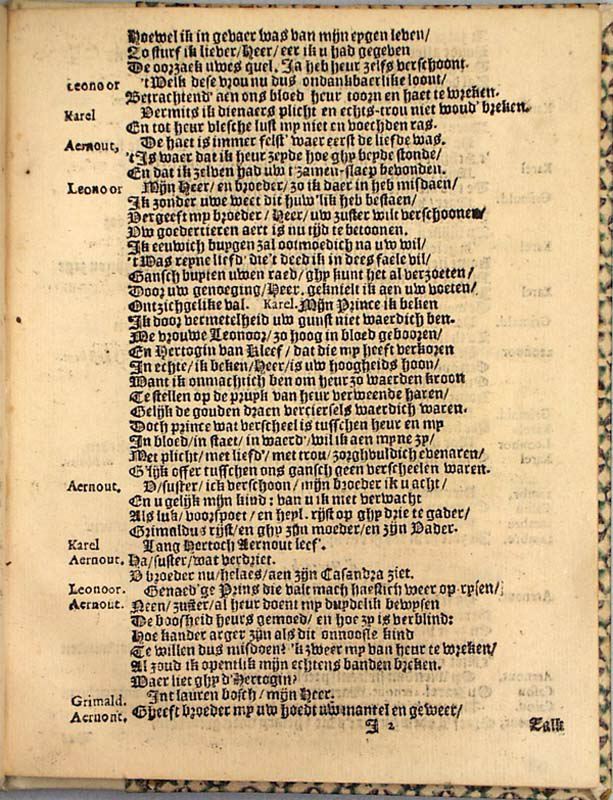 Hoewel ik in gevaer was van mijn eygen leven/
Zo sturf ik liever/Heer/eer ik u had gegeven
De oorzaek uwes quel. Ja heb heur zelfs verschoont.
Leonoor 'tWelk dese vrou nu dus ondankbaerlike loont/
Betrachtend' aen ons bloed heur toorn en haet te wreken.
Karel Vermits ik dienaers plicht en echts-trou niet woud' breken.
En tot heur vlesche lust my niet en voechden ras.
Aernout, De haet is immer felst' waer eerst de liefde was.
't Is waer dat ik heur zeyde hoe ghy beyde stonde/
En dat ik zelven had uw t'zamen-slaep bevonden.
Leonoor Mijn Heer/en broeder/zo ik daer in heb misdaen/
Ik zonder uwe weet dit huw'lik heb bestaen/
Vergeeft my broeder/Heer/uw zuster wilt verschoonen/
Uw goedertieren aert is nu tijd te betoonen.
Ik eeuwich buygen zal ootmoedich na uw wil/
't Was reyne liefd' die't deed ik in dees faele vil/
Gansch buyten uwen raed/ghy kunt het al verzoeten/
Door uw genoeging/Heer. geknielt ik aen uw voeten/
Ontzichgelike val. Karel. Mijn Prince ik beken
Ik door vermetelheid uw gunst niet waerdich ben.
Me vrouwe Leonoor/zo hoog in bloed gebooren/
En Hertogin van Kleef/dat die my heeft verkoren
In echte/ik beken/Heer/is uw hoogheids hoon/
Want ik onmachtich ben om heur zo waerden kroon
Te stellen op de pruyk van heur verweende haren/
Gelijk de gouden draen verciersels waerdich waren.
Doch prince wat verscheel is tusschen heur en my
In bloed/in staet/in waerd'/wil ik aen myne zy/
Met plicht/met liefd'/met trou/zorghvuldich evenaren/
G'lijk offer tusschen ons gansch geen verscheelen waren.
Aernout. O/suster/ick verschoon/mijn broeder ik u acht/
En u gelijk mijn kind: van u ik met verwacht
Als luk/voorspoet/en heyl. rijst op ghy drie te gader/
Grimaldus rijst/en ghy zijn moeder/en zijn Vader.
Karel Lang Hertoch Aernout leef'.
Aernout. Ha/suster/wat verdriet.
O broeder nu/helaes/aen zijn Casandra ziet.
Leonoor. Genaed'ge Prins die valt mach haestich weer op rysen/
Aernout. Neen/zuster/al heur doent my duydelik bewysen
De boosheid heurs gemoed/en hoe zy is verblind:
Hoe kander arger zijn als dit onnoosle kind
Te willen dus misdoen? 'k zweer my van heur te wreken/
Al zoud ik opentlik mijn echtens banden breken.
Waer liet ghy d'Hertogin?
Grimald. Int lauren bosch/mijn Heer.
Aernout. Gheeft broeder my uw hoedt uw mantel en geweer/
I 2 Zalk